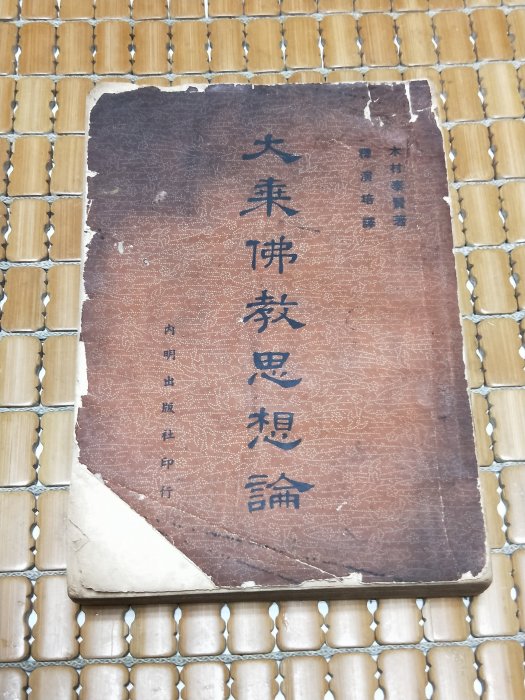 木村泰賢著
釋演培譯
大乘佛教思想論
內明出版社印行